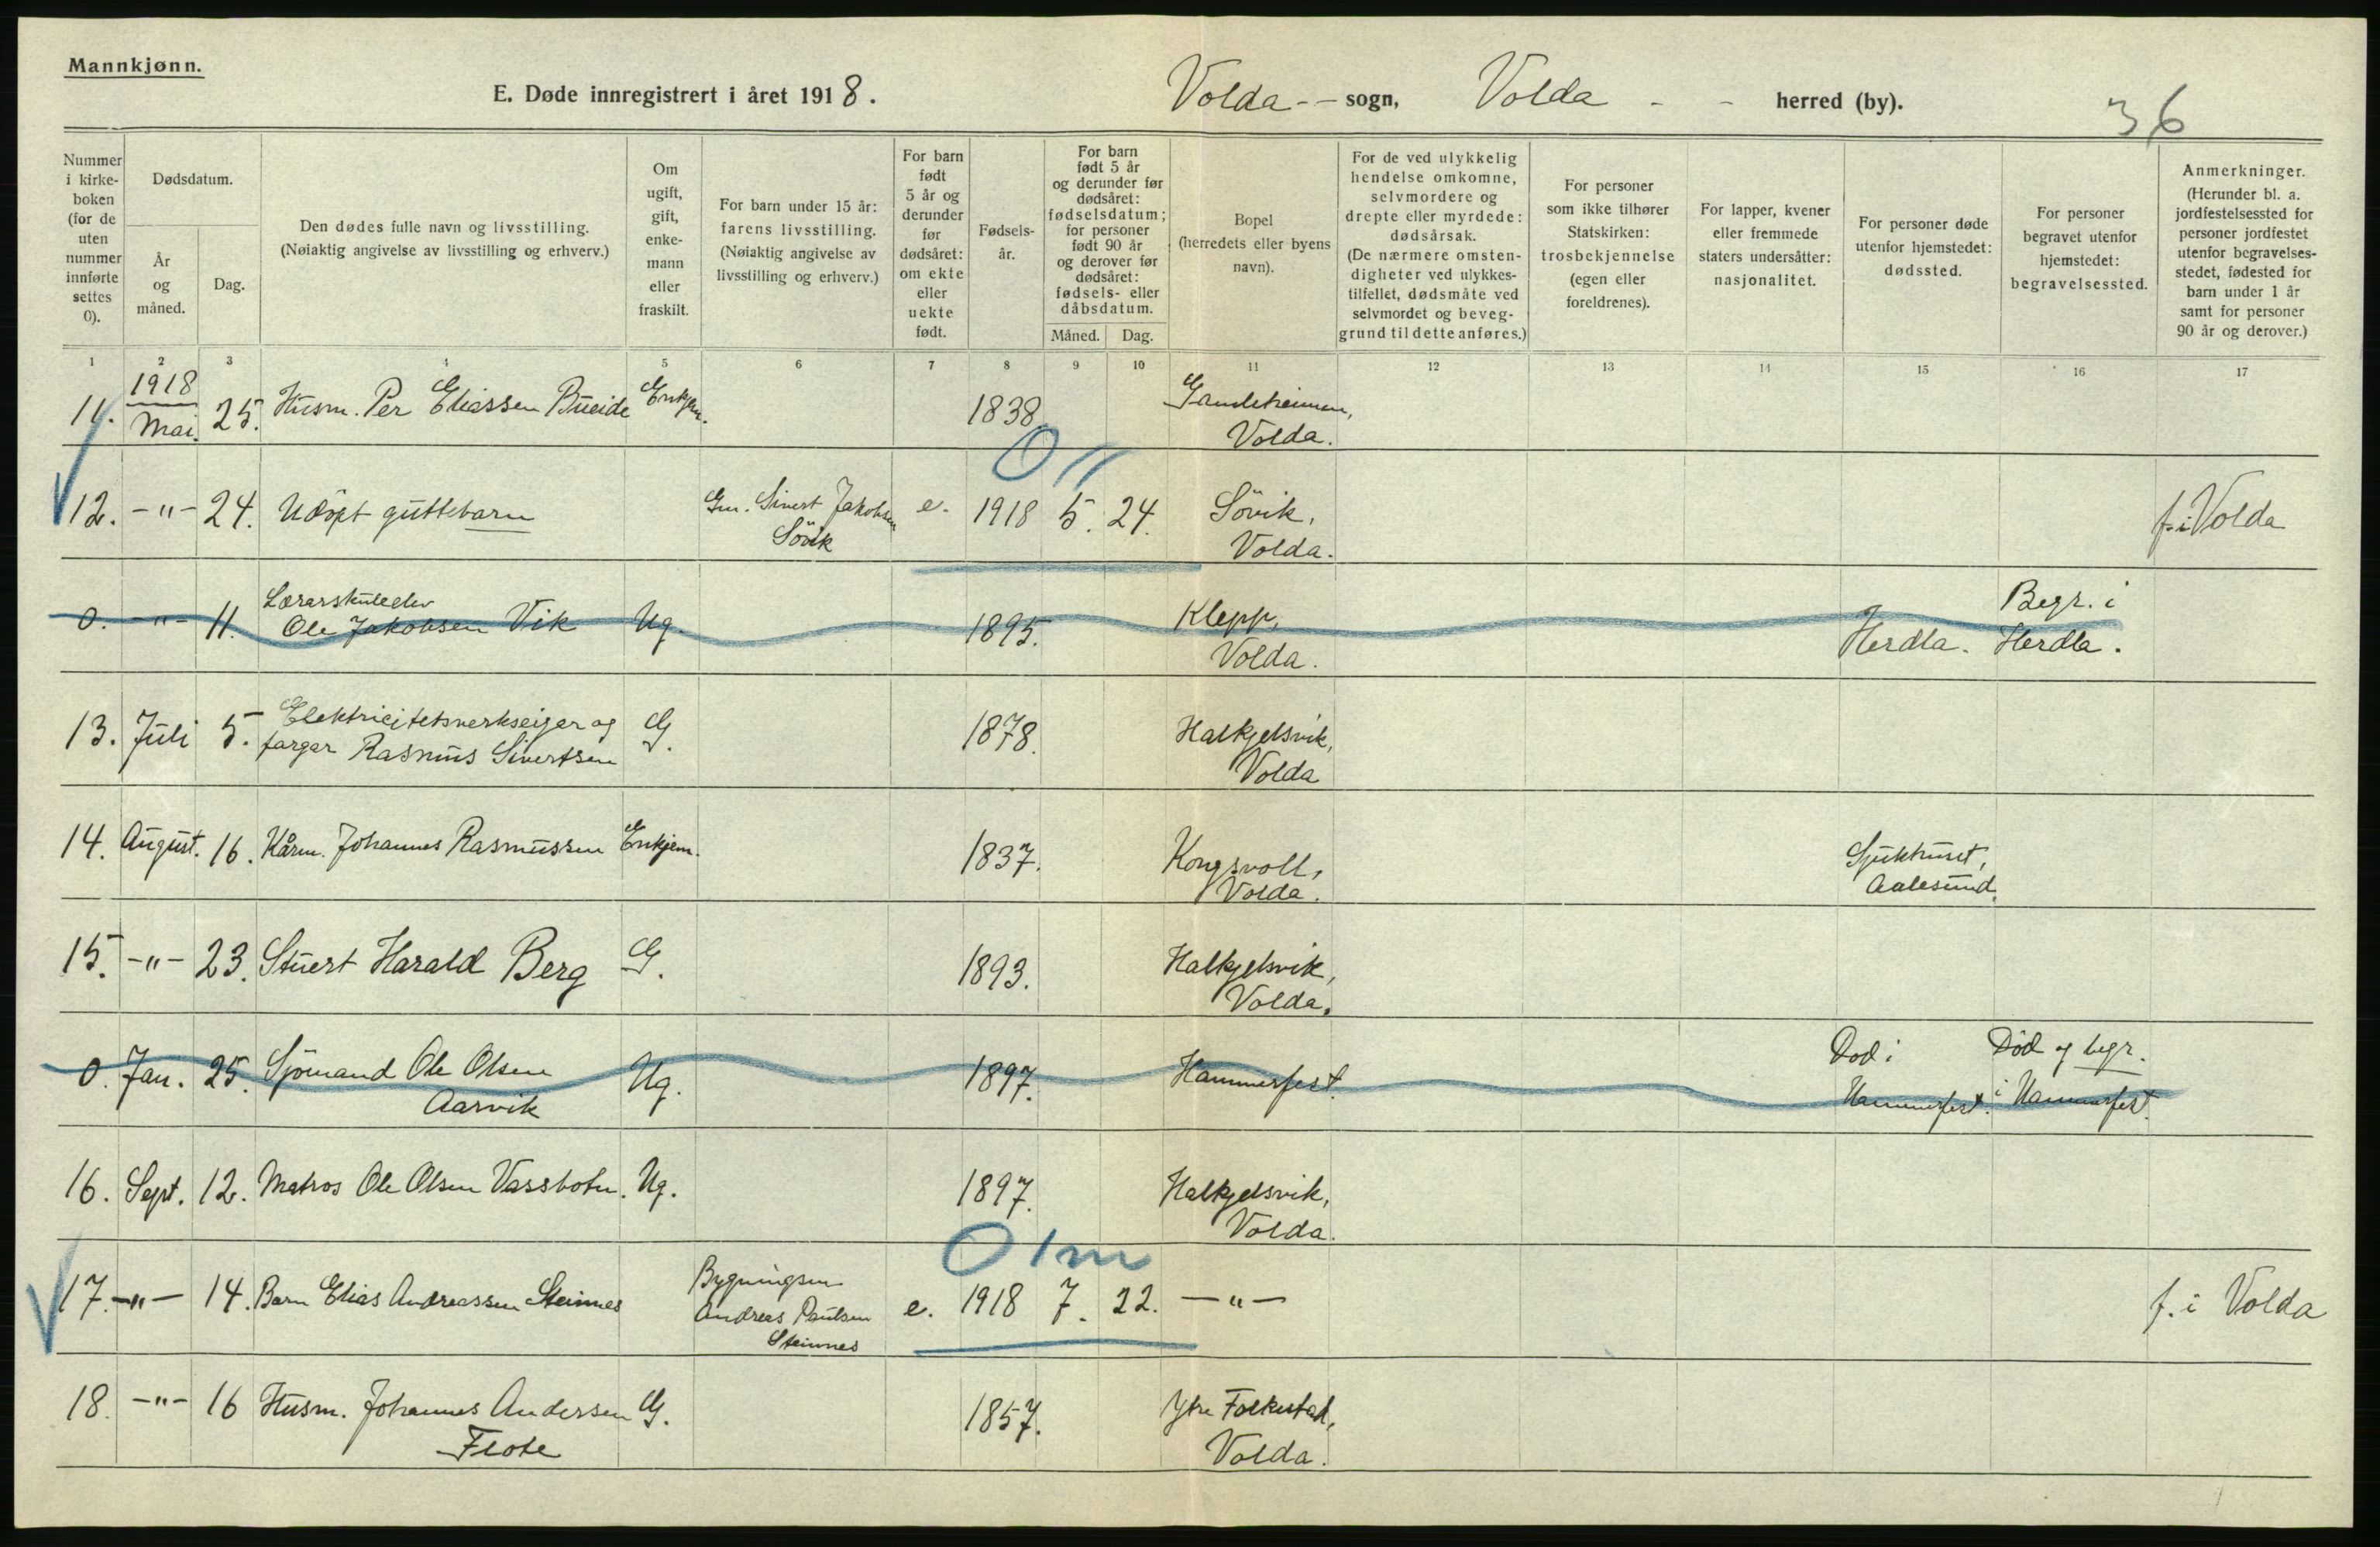 Mannkjønn.
E. Døde innregistrert i året 1918.
Volda - - sogn, Volda - - herred (by).
36
Nummer i kirke-boken (for de uten nummer innførte settes 0).
Dødsdatum.
År og måned.
Dag.
Den dødes fulle navn og livsstilling.
(Nøiaktig angivelse av livsstilling og erhverv.)
Om ugift, gift, enke-mann eller fraskilt.
For barn under 15 år: farens livsstilling. (Nøiaktig angivelse av livsstilling og erhverv.)
For barn født 5 år og derunder før dødsåret: om ekte eller uekte født.
Fødsels-år.
For barn født 5 år og derunder før dødsåret: fødselsdatum; for personer født 90 år og derover før dødsåret: fødsels- eller dåbsdatum.
Måned. Dag.
Bopel (herredets eller byens navn).
For de ved ulykkelig hendelse omkomne, selvmordere og drepte eller myrdede: dødsårsak. (De nærmere omsten-digheter ved ulykkes-tilfellet, dødsmåte ved selvmordet og beveg-grund til dette anføres.)
For personer som ikke tilhører Statskirken: trosbekjennelse (egen eller foreldrenes).
For lapper, kvener eller fremmede staters undersåtter: nasjonalitet.
For personer døde utenfor hjemstedet: dødssted.
For personer begravet utenfor hjemstedet: begravelsessted.
Anmerkninger. (Herunder bl. a. jordfestelsessted for personer jordfestet utenfor begravelses-stedet, fødested for barn under 1 år samt for personer 90 år og derover.)
1 2 3 4 5 6 7 8 9 10 11 12 13 14 15 16 17
1918
11. Mai. 25. Husm. Per Eliassen Bueide Enkjem. 1838
Volda.
12. -"- 24. Udöpt guttebarn Gm. Sivert Jakobsen Sövik e. 1918 5. 24. Sövik, Volda. f. i Volda
0. -"- 11. Lærarskuleelev Ole Jakobsen Vik Ug. 1895. Klepp, Volda. Herdla. Begr. i Herdla.
13. Juli 5. Elektricitetsverkseigar og fargar Rasmus Sivertsen G. 1878. Halkjelsvik, Volda
14. August. 16. Kårm. Johannes Rasmussen Enkjem. 1837. Kongsvoll, Volda. Sjukhuset, Aalesund.
15. -"- 23. Stuert Harald Berg G. 1893. Halkjelsvik, Volda.
0. Jan. 25. Sjömand Ole Olsen Aarvik Ug. 1897. Hammerfest. Död i Hammerfest. Död og begr. i Hammerfest.
16. Sept. 12. Matros Ole Olsen Vassbotn. Ug. 1897. Halkjelsvik, Volda.
0 1 m
17. -"- 14. Barn Elias Andreassen Steinnes Bygningsm Andreas Paulsen Steinnes e. 1918 7. 22. -"- f. i Volda
18. -"- 16 Husm. Johannes Andersen Flote G. 1857. Ytre Folkestad, Volda.